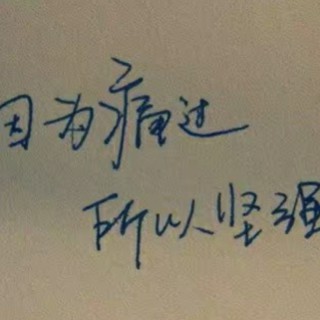 因为痛过
所以坚强